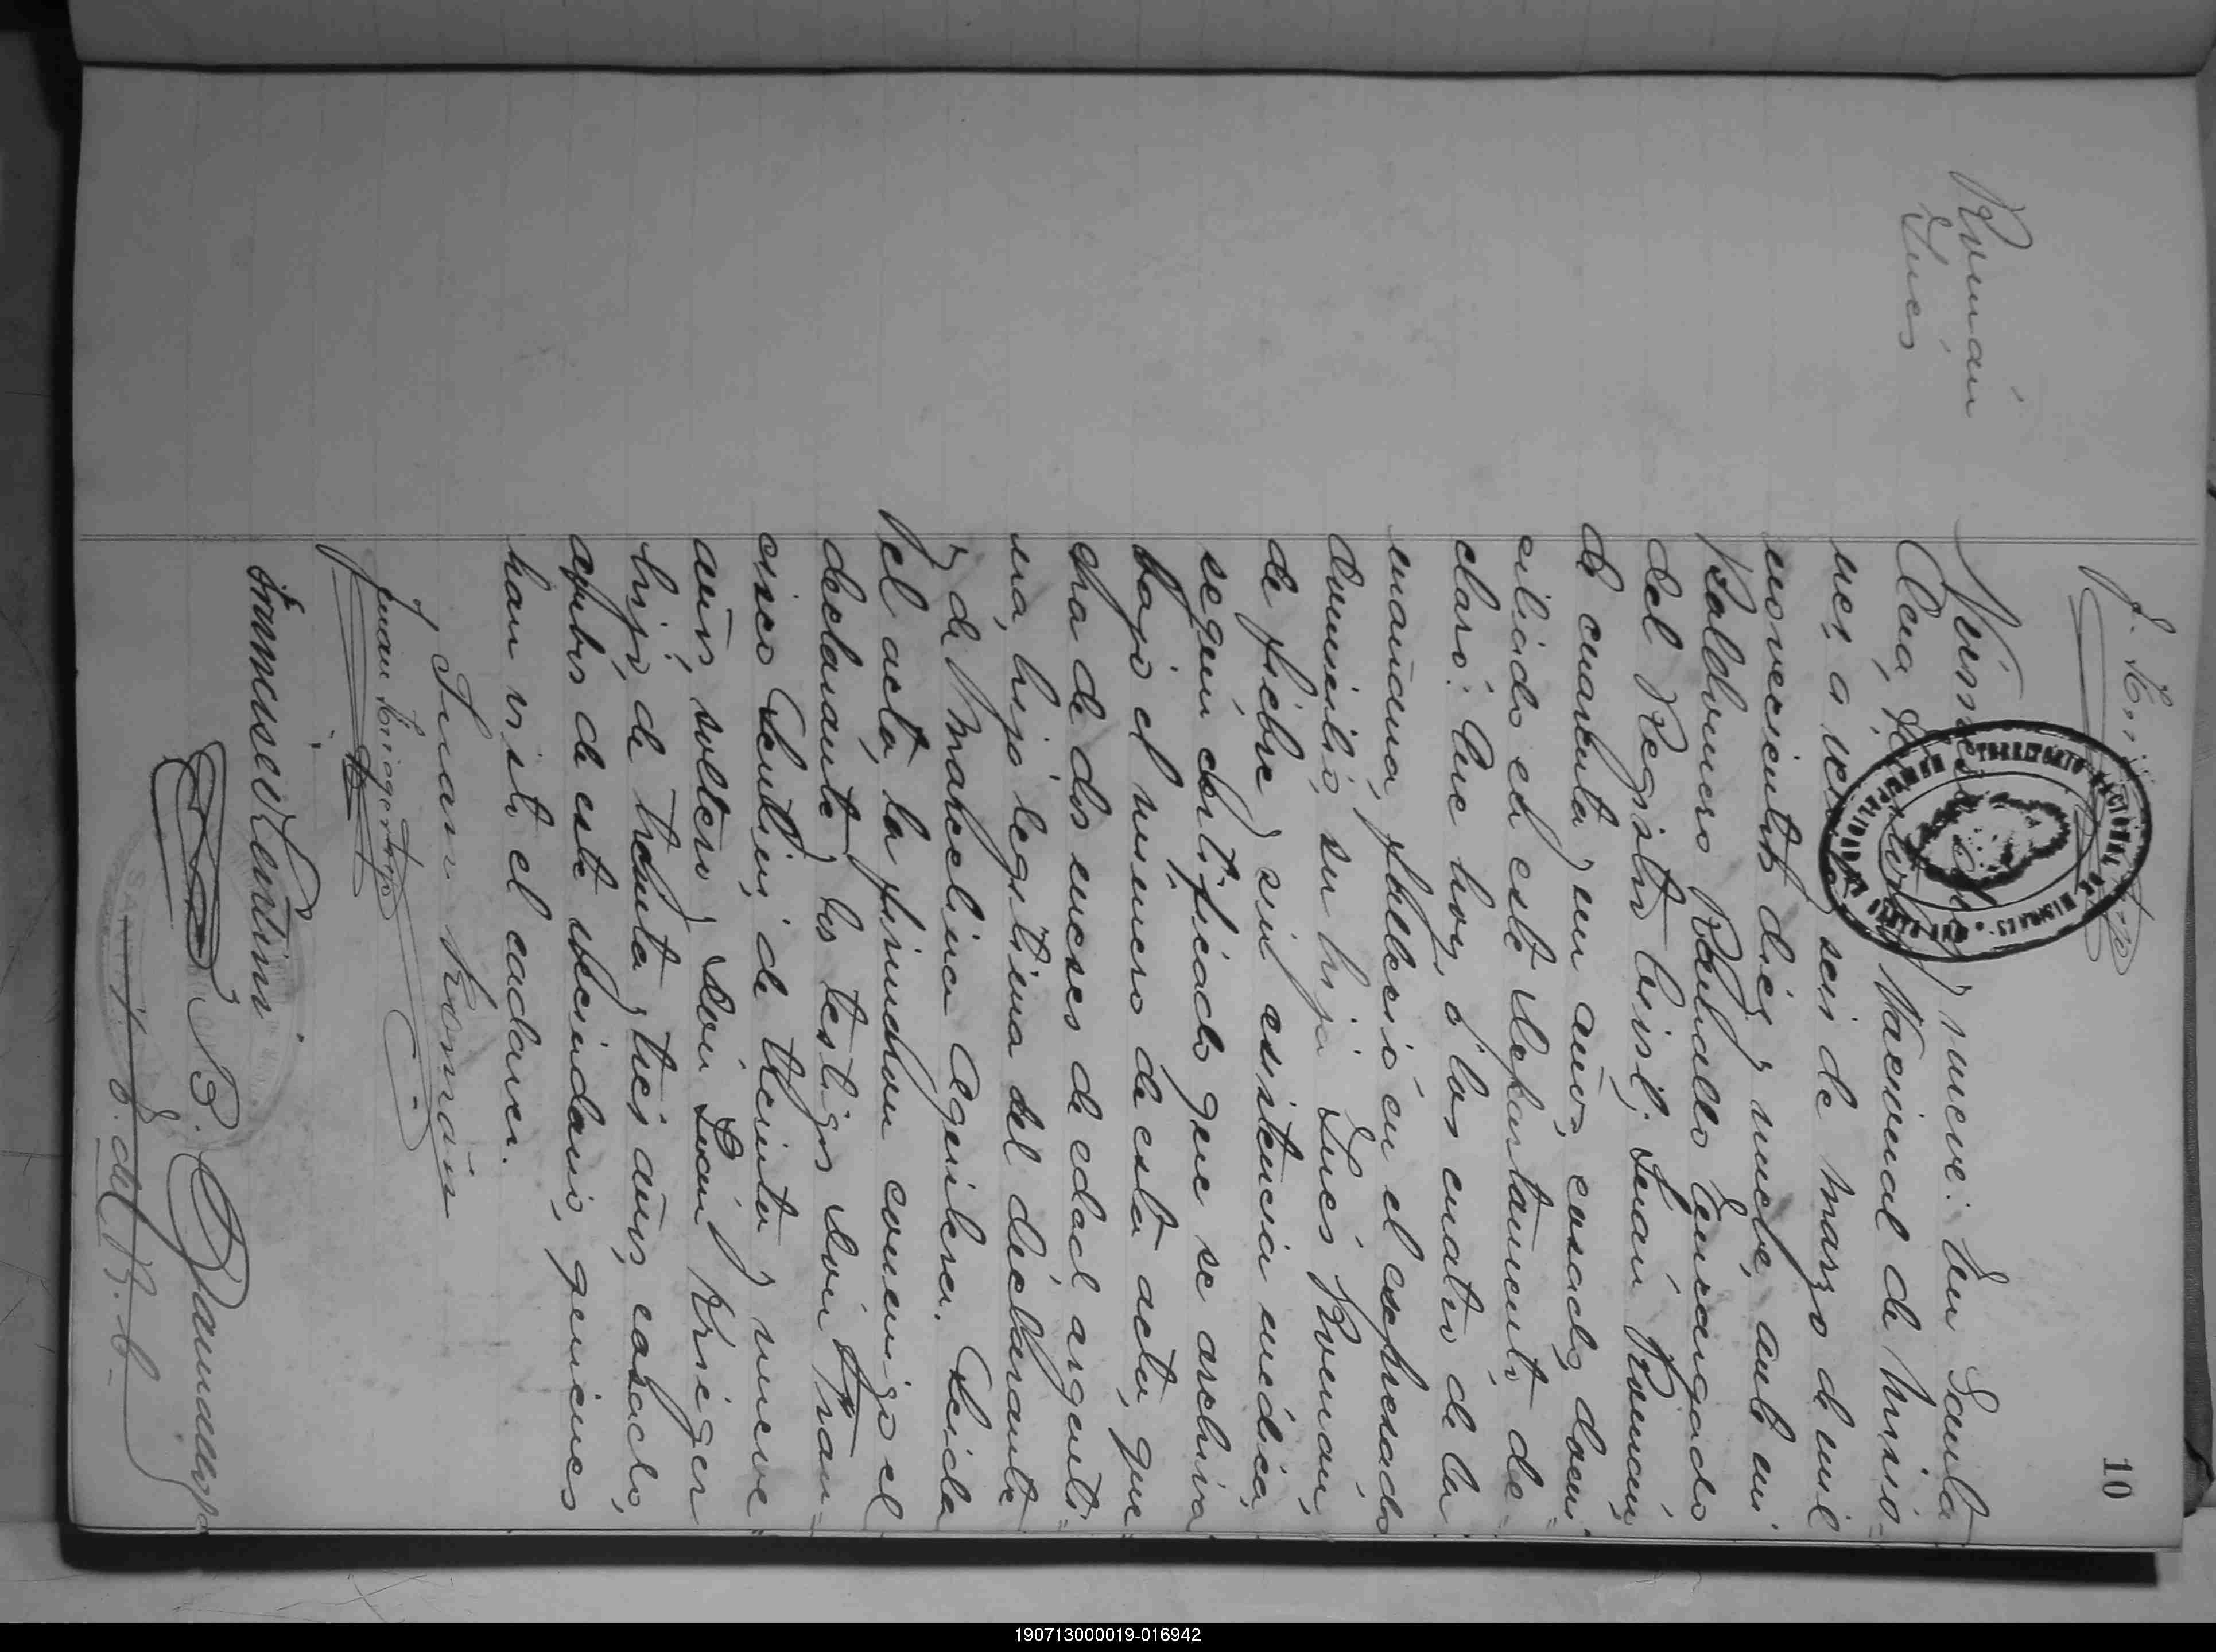 10
Román
Inés
Número y nueve: En Santa
Ana, Territorio Nacional de Misio=
nes, a veinte y seis de marzo de mil
novecientos diez y nueve, ante mi
Baldomero Bahallo Encargado
del Registro Civil; Juan Román,
de cuarenta y un años, casado, domi=
ciliado en este departamento de=
claró: Que hoy, á las cuatro de la
mañana, falleció en el espresado
domicilio, su hija Inés Román,
de fiebre y sin asistencia médica,
según certificado que se archiva
bajo el número de esta acta, que
era de dos meses de edad argenti=
na, hija legitima del declarante
y de Marcelina Aguilera. Leida
el acta, la firmaron conmigo el
declarante y los testigos Don Fran=
cisco Lentini, de treinta y nueve
años, soltero y Don Juan Krieger
hijo, de treinta y tres años, casado,
ambos de este vecindario, quienes
han visto el cadaver.
Juan Román
Juan Krieger hijo
Francisco Lentini
E. del R. C.
TERRITORIO NACIONAL DE MISIONES
190713000019-016942